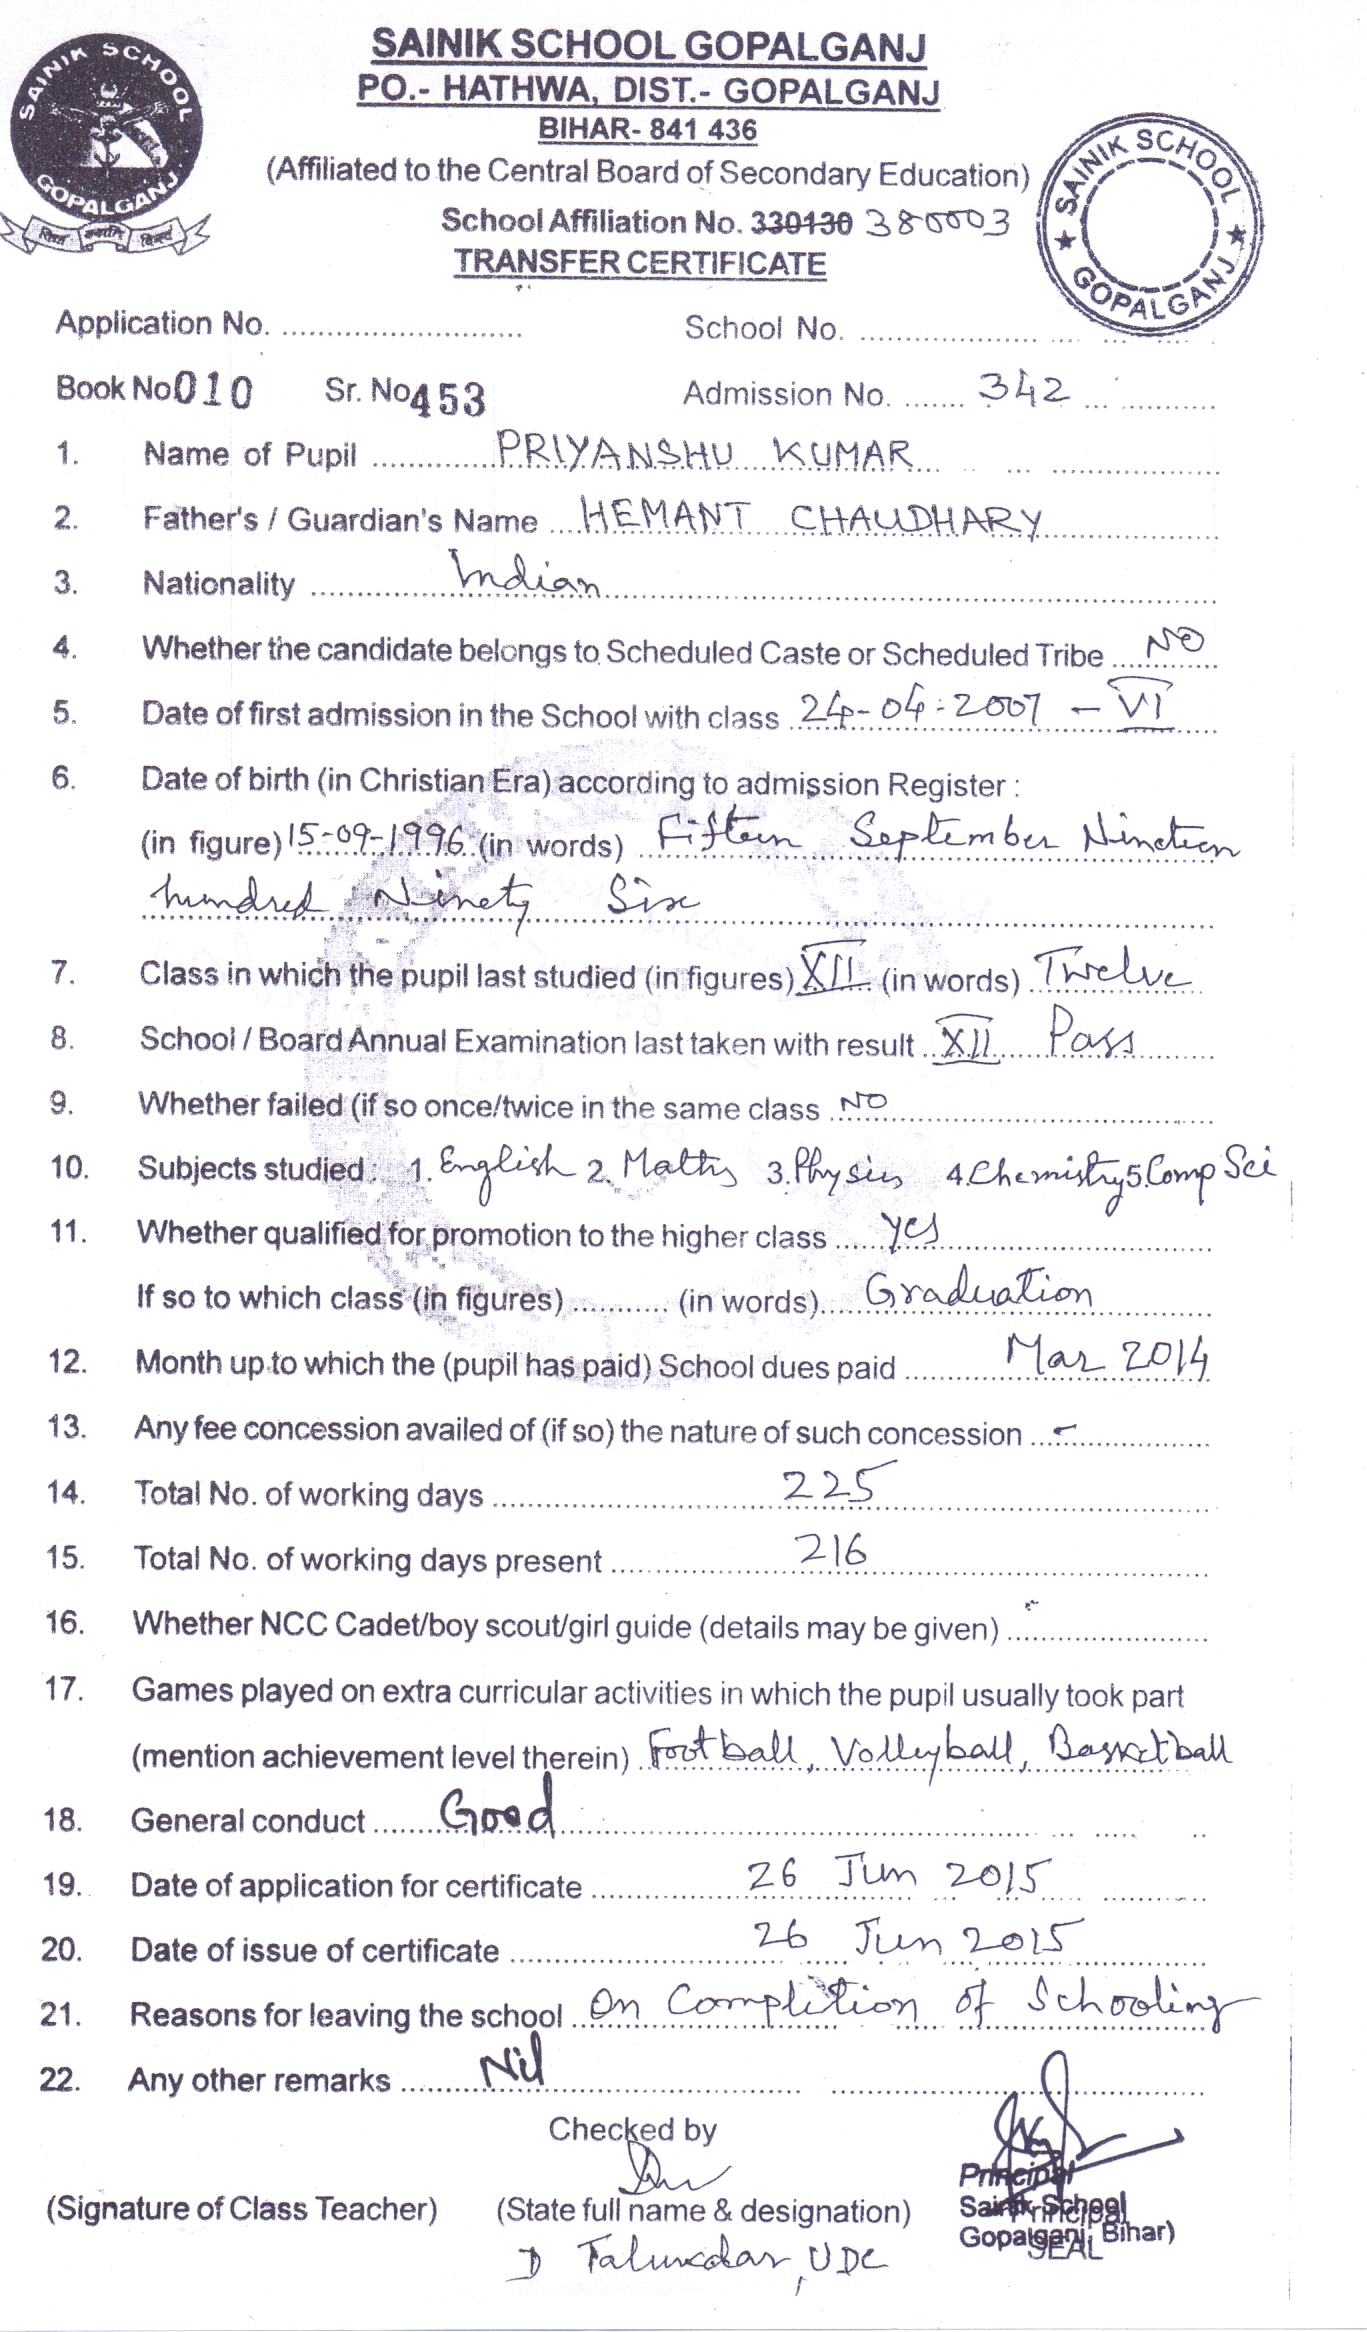 SAINIK SCHOOL GOPALGANJ
SAINIK SCHOOL GOPALGANJ
PO.- HATHWA, DIST.- GOPALGANJ
BIHAR- 841 436
(Affiliated to the Central Board of Secondary Education)
School Affiliation No. 330130 380003
TRANSFER CERTIFICATE
★ SAINIK SCHOOL ★ GOPALGANJ
Application No. .......... School No. ..........
Book No 010 Sr. No 453 Admission No. ....... 342
1. Name of Pupil PRIYANSHU KUMAR
2. Father's / Guardian's Name HEMANT CHAUDHARY
3. Nationality Indian
4. Whether the candidate belongs to Scheduled Caste or Scheduled Tribe NO
5. Date of first admission in the School with class 24-04-2007 - VI
6. Date of birth (in Christian Era) according to admission Register :
(in figure) 15-09-1996 (in words) Fifteen September Nineteen
hundred Ninety Six
7. Class in which the pupil last studied (in figures) XII (in words) Twelve
8. School / Board Annual Examination last taken with result XII Pass
9. Whether failed (if so once/twice in the same class NO
10. Subjects studied : 1. English 2. Maths 3. Physics 4. Chemistry 5. Comp Sci
11. Whether qualified for promotion to the higher class yes
If so to which class (in figures) ........... (in words) Graduation
12. Month up to which the (pupil has paid) School dues paid Mar 2014
13. Any fee concession availed of (if so) the nature of such concession -
14. Total No. of working days 225
15. Total No. of working days present 216
16. Whether NCC Cadet/boy scout/girl guide (details may be given) ..........
17. Games played on extra curricular activities in which the pupil usually took part
(mention achievement level therein) Football, Volleyball, Basketball
18. General conduct Good
19. Date of application for certificate 26 Jun 2015
20. Date of issue of certificate 26 Jun 2015
21. Reasons for leaving the school On Completion of Schooling
22. Any other remarks Nil
Checked by
Principal
(Signature of Class Teacher) (State full name & designation) Sainik School
Principal
Gopalganj, Bihar)
SEAL
D Talukdar, UDC